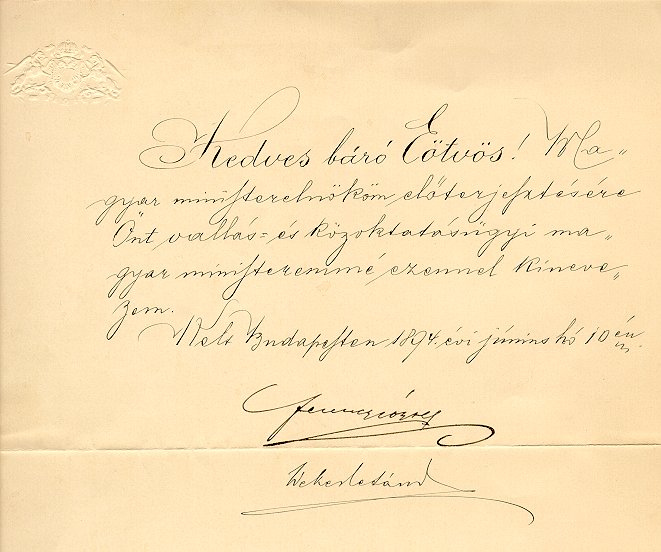 Kedves báró Eötvös! Ma„
gyar ministerelnököm előterjesztésére
Önt vallás= és közoktatásügyi ma„
gyar ministeremmé ezennel kineve„
zem.
Kelt Budapesten 1894. évi június hó 10 én
Ferencz József
Wekerle Sánd